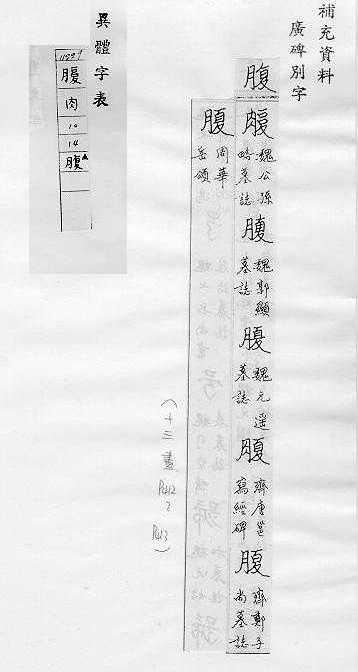 補充資料
廣碑別字
腹
腹 魏公孫略墓誌
腹 魏郭顯墓誌
腹 魏元遥墓誌
腹 齊唐邕寫經碑
腹 齊鄭子尚墓誌
腹 周華岳頌
(十三畫 P412 ? P413)
異體字表
腹
肉
10
14
腹